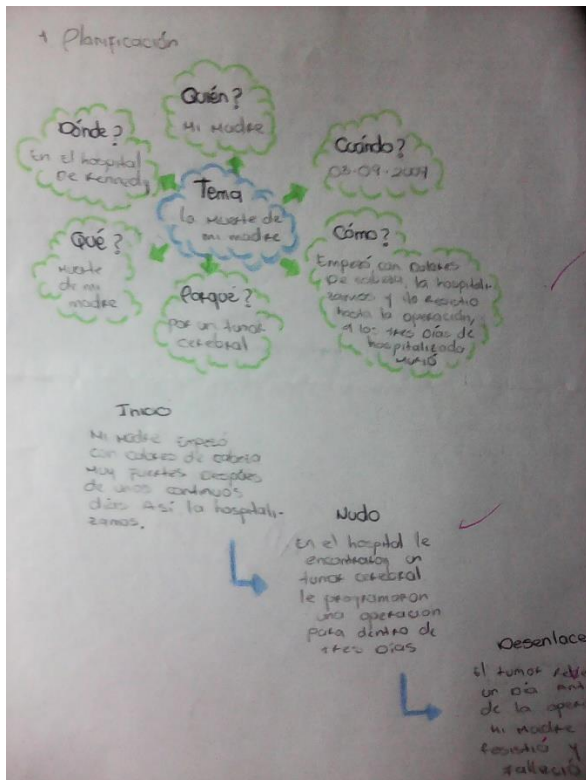 1 Planificación
Quién?
Mi Madre
Dónde?
En el hospital
De Kennedy
Cuándo?
03-09-2009
Tema
la muerte de
mi madre
Qué?
Muerte
de mi
madre
Porqué?
por un tumor
cerebral
Cómo?
Empezó con Dolores
De cabeza, la hospitali-
zamos y lo Resistio
hasta la operación,
a los tres Días de
hospitalizada
Murió
Inicio
Mi Madre Empezó
con dolores de cabeza
Muy fuertes Después
de unos continuos
días Así la hospitali-
zamos.
Nudo
En el hospital le
encontraron un
tumor cerebral
le programaron
una operacion
para dentro de
tres Días
Desenlace
El tumor
un Dia
de la
Mi Madre
Resistió y
falleció